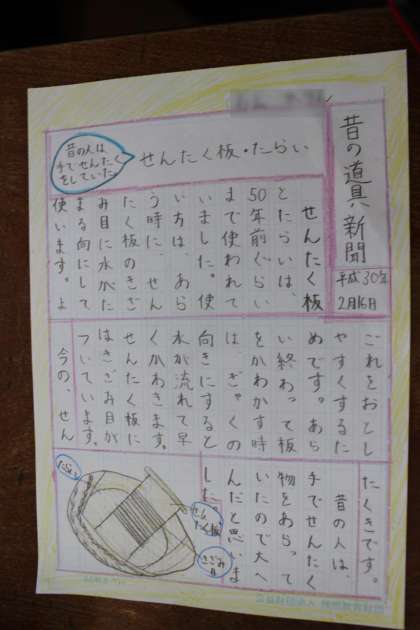 昔の道具新聞
平成30年
2月16日
せんたく板・たらい
昔の人は
手でせんたく
をしていた。
せんたく板
とたらいは、
50年前ぐらい
まで使われて
いました。使
い方は、あら
う時に、せん
たく板のきざ
み目に水がた
まる向にして
使います。よ
ごれをおとし
やすくするた
めです。あら
い終わって板
をかわかす時
は、ぎゃくの
向きにすると
水が流れて早
くかわきます。
せんたく板に
はきざみ目が
ついています。
今の、せん
たくきです。
昔の人は、
手でせんたく
物をあらって
いたので大へ
んだと思いま
した。
たらい
せん
たく板
きざみ
目